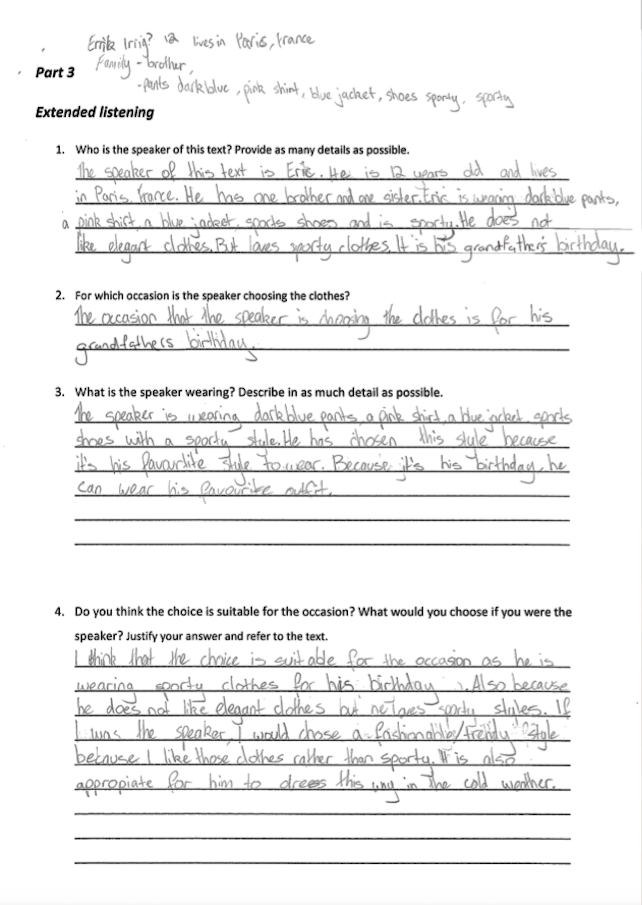 Errik Iriig? 12 lives in Paris, France
Family - brother,
Part 3
- pants dark blue, pink shirt, blue jacket, shoes sporty, sporty
Extended listening
1. Who is the speaker of this text? Provide as many details as possible.
The speaker of this text is Eric. He is 12 years old and lives
in Paris, France. He has one brother and one sister. Eric is wearing dark blue pants,
a pink shirt, a blue jacket, sports shoes and is sporty. He does not
like elegant clothes. But loves sporty clothes. It is his grandfather's birthday.
2. For which occasion is the speaker choosing the clothes?
The occasion that the speaker is choosing the clothes is for his
grandfathers birthday.
3. What is the speaker wearing? Describe in as much detail as possible.
The speaker is wearing dark blue pants, a pink shirt, a blue jacket, sports
shoes with a sporty style. He has chosen this style because
it's his favourtite style to wear. Because it's his birthday, he
can wear his favourite outfit.
4. Do you think the choice is suitable for the occasion? What would you choose if you were the
speaker? Justify your answer and refer to the text.
I think that the choice is suitable for the occasion as he is
wearing sporty clothes for his birthday. Also because
he does not like elegant clothes but he loves sporty styles. If
I was the speaker, I would chose a fashionable/trendy style
because I like those clothes rather than sporty. It is also
appropiate for him to dress this way in the cold weather.